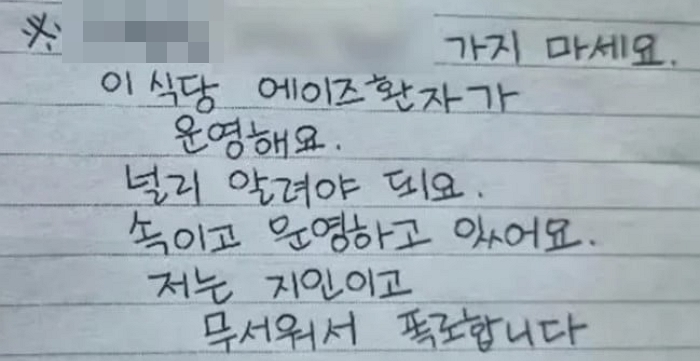 ※ 가지 마세요.
이 식당 에이즈환자가
운영해요.
널리 알려야 돼요.
속이고 운영하고 있어요.
저는 지인이고
무서워서 폭로합니다